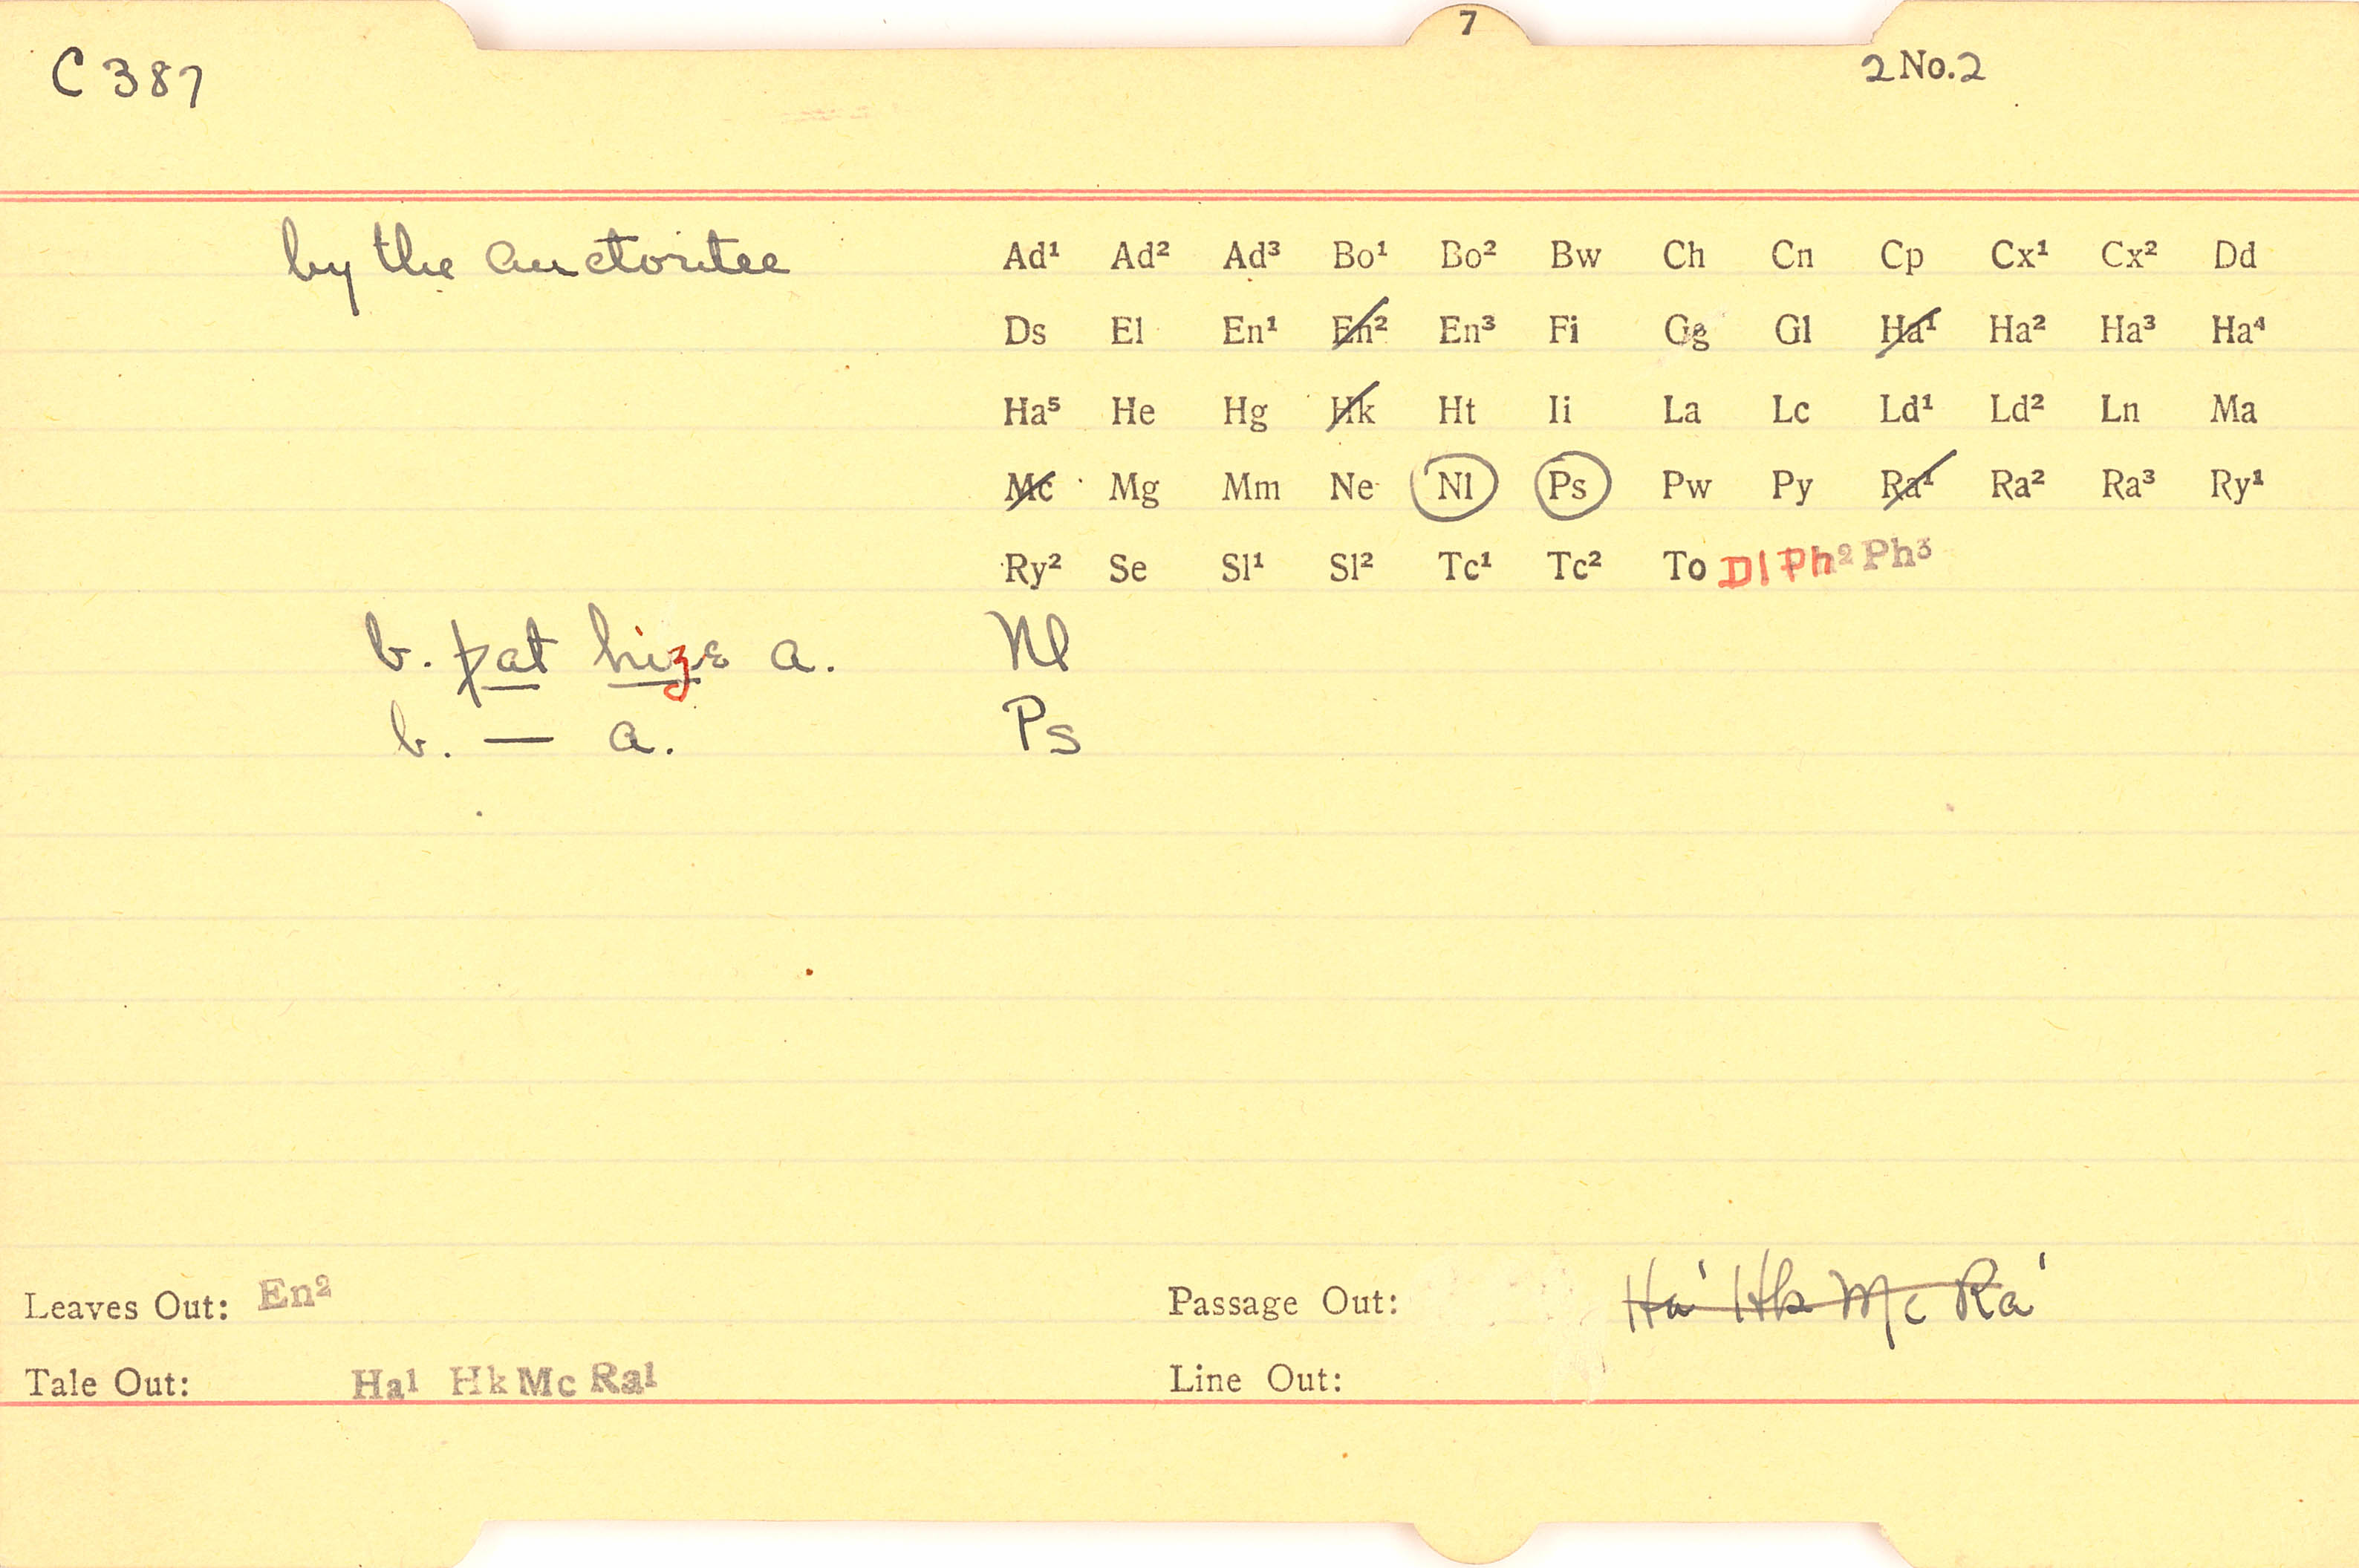 7
C 387
2 No. 2
by the auctoritee
Ad¹ Ad² Ad³ Bo¹ Bo² Bw Ch Cn Cp Cx¹ Cx² Dd
Ds El En¹ En² En³ Fi Gg Gl Ha¹ Ha² Ha³ Ha⁴
Ha⁵ He Hg Hk Ht Ii La Lc Ld¹ Ld² Ln Ma
Mc Mg Mm Ne Nl Ps Pw Py Ra¹ Ra² Ra³ Ry¹
Ry² Se Sl¹ Sl² Tc¹ Tc² To Dl Ph² Ph³
b. þat hiȝe a. Nl
b. — a. Ps
Leaves Out: En²
Passage Out: Ha¹ Hk Mc Ra¹
Tale Out: Ha¹ Hk Mc Ra¹
Line Out: